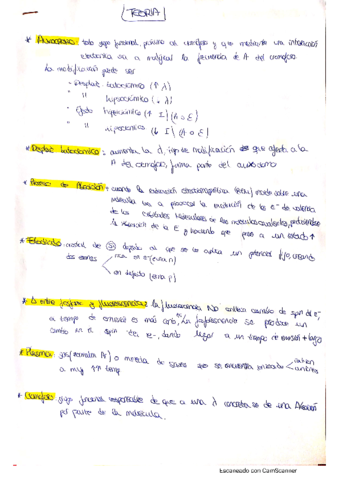 TEORÍA
* Auxocromo: todo grupo funcional próximo al cromóforo y que mediante una interacción
electrónica va a modificar la frecuencia de A del cromóforo.
La modificación puede ser
- Desplaz. batocrómico (↑ λ)
- " hipsocrómico (↓ λ)
- Efecto hipercrómico (↑ I) (A o E)
- " hipocrómico (↓ I) (A o E)
* Desplaz batocrómico: aumenta la λ, tipo de modificación que afecta a la
λ del cromóforo, forma parte del auxocromo
* Proceso de Absorción: cuando la radiación electromagnética incide sobre una
molécula va a provocar la excitación de los e⁻ de valencia
de los orbitales moleculares
la absorción de la E y haciendo que pase a un estado ↑
* Electrodo: material de depende al que se le aplica un potencial fijo, usando
dos zonas
con defecto
* Δ entre fosforo y fluorescencia: la fluorescencia NO conlleva cambio de spin del e⁻,
el tiempo de emisión es más corto, la fosforescencia se produce un
cambio en el spin del e⁻, dando lugar a un tiempo de emisión + largo
* Plasma: gas (normalm Ar) o mezcla de gases que se encuentra ionizado
a muy ↑↑ temp.
cationes
* Cromóforo: grupo funcional responsable de que a una λ concreta se dé una Absorción
por parte de la molécula.
Escaneado con CamScanner